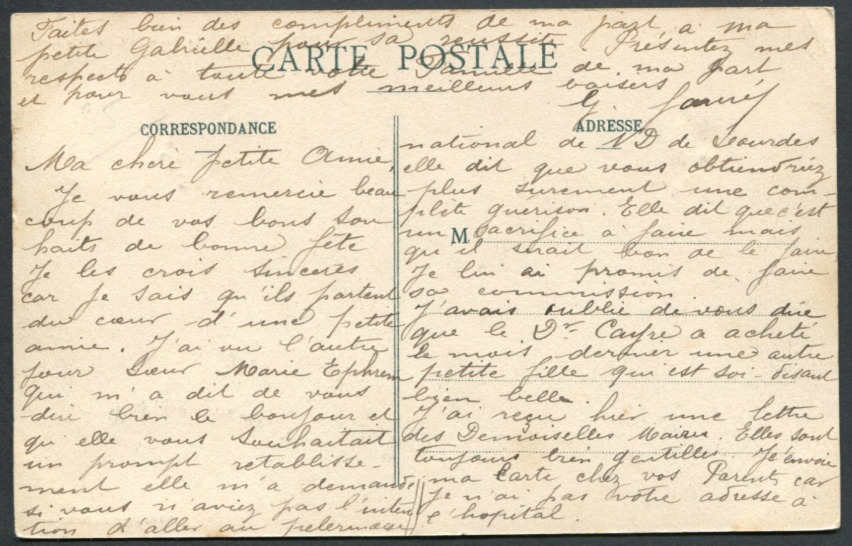 Faites bien des compliments de ma part à ma
petite Gabrielle pour sa reussite. Présentez mes
respects à toute votre Famille de ma part
et pour vous mes meilleurs baisers
CARTE POSTALE
CORRESPONDANCE
Ma chere petite Amie,
Je vous remercie beau
coup de vos bons sou
haits de bonne fête
Je les crois sinceres
car Je sais qu'ils partent
du cœur d'une petite
amie. J'ai vu l'autre
jour Sœur Marie Ephrem
qui m'a dit de vous
dire bien le bonjour et
qu'elle vous souhaitait
un prompt retablisse-
ment elle m'a demandé
si vous n'aviez pas l'inten
tion d'aller au pelerinage
ADRESSE
national de ND de Lourdes
elle dit que vous obtiendriez
plus surement une com-
plète guerison. Elle dit que c'est
un sacrifice à faire mais
M
qu'il serait bon de le faire
Je lui ai promis de faire
sa commission.
J'avais oublié de vous dire
que le Dr Cayre a acheté
le mois dernier une autre
petite fille qui est soi-disant
bien belle.
J'ai reçu hier une lettre
des Demoiselles Elles sont
toujours bien gentilles Je envoie
ma Carte chez vos Parents car
Je n'ai pas votre adresse à
l'hopital.